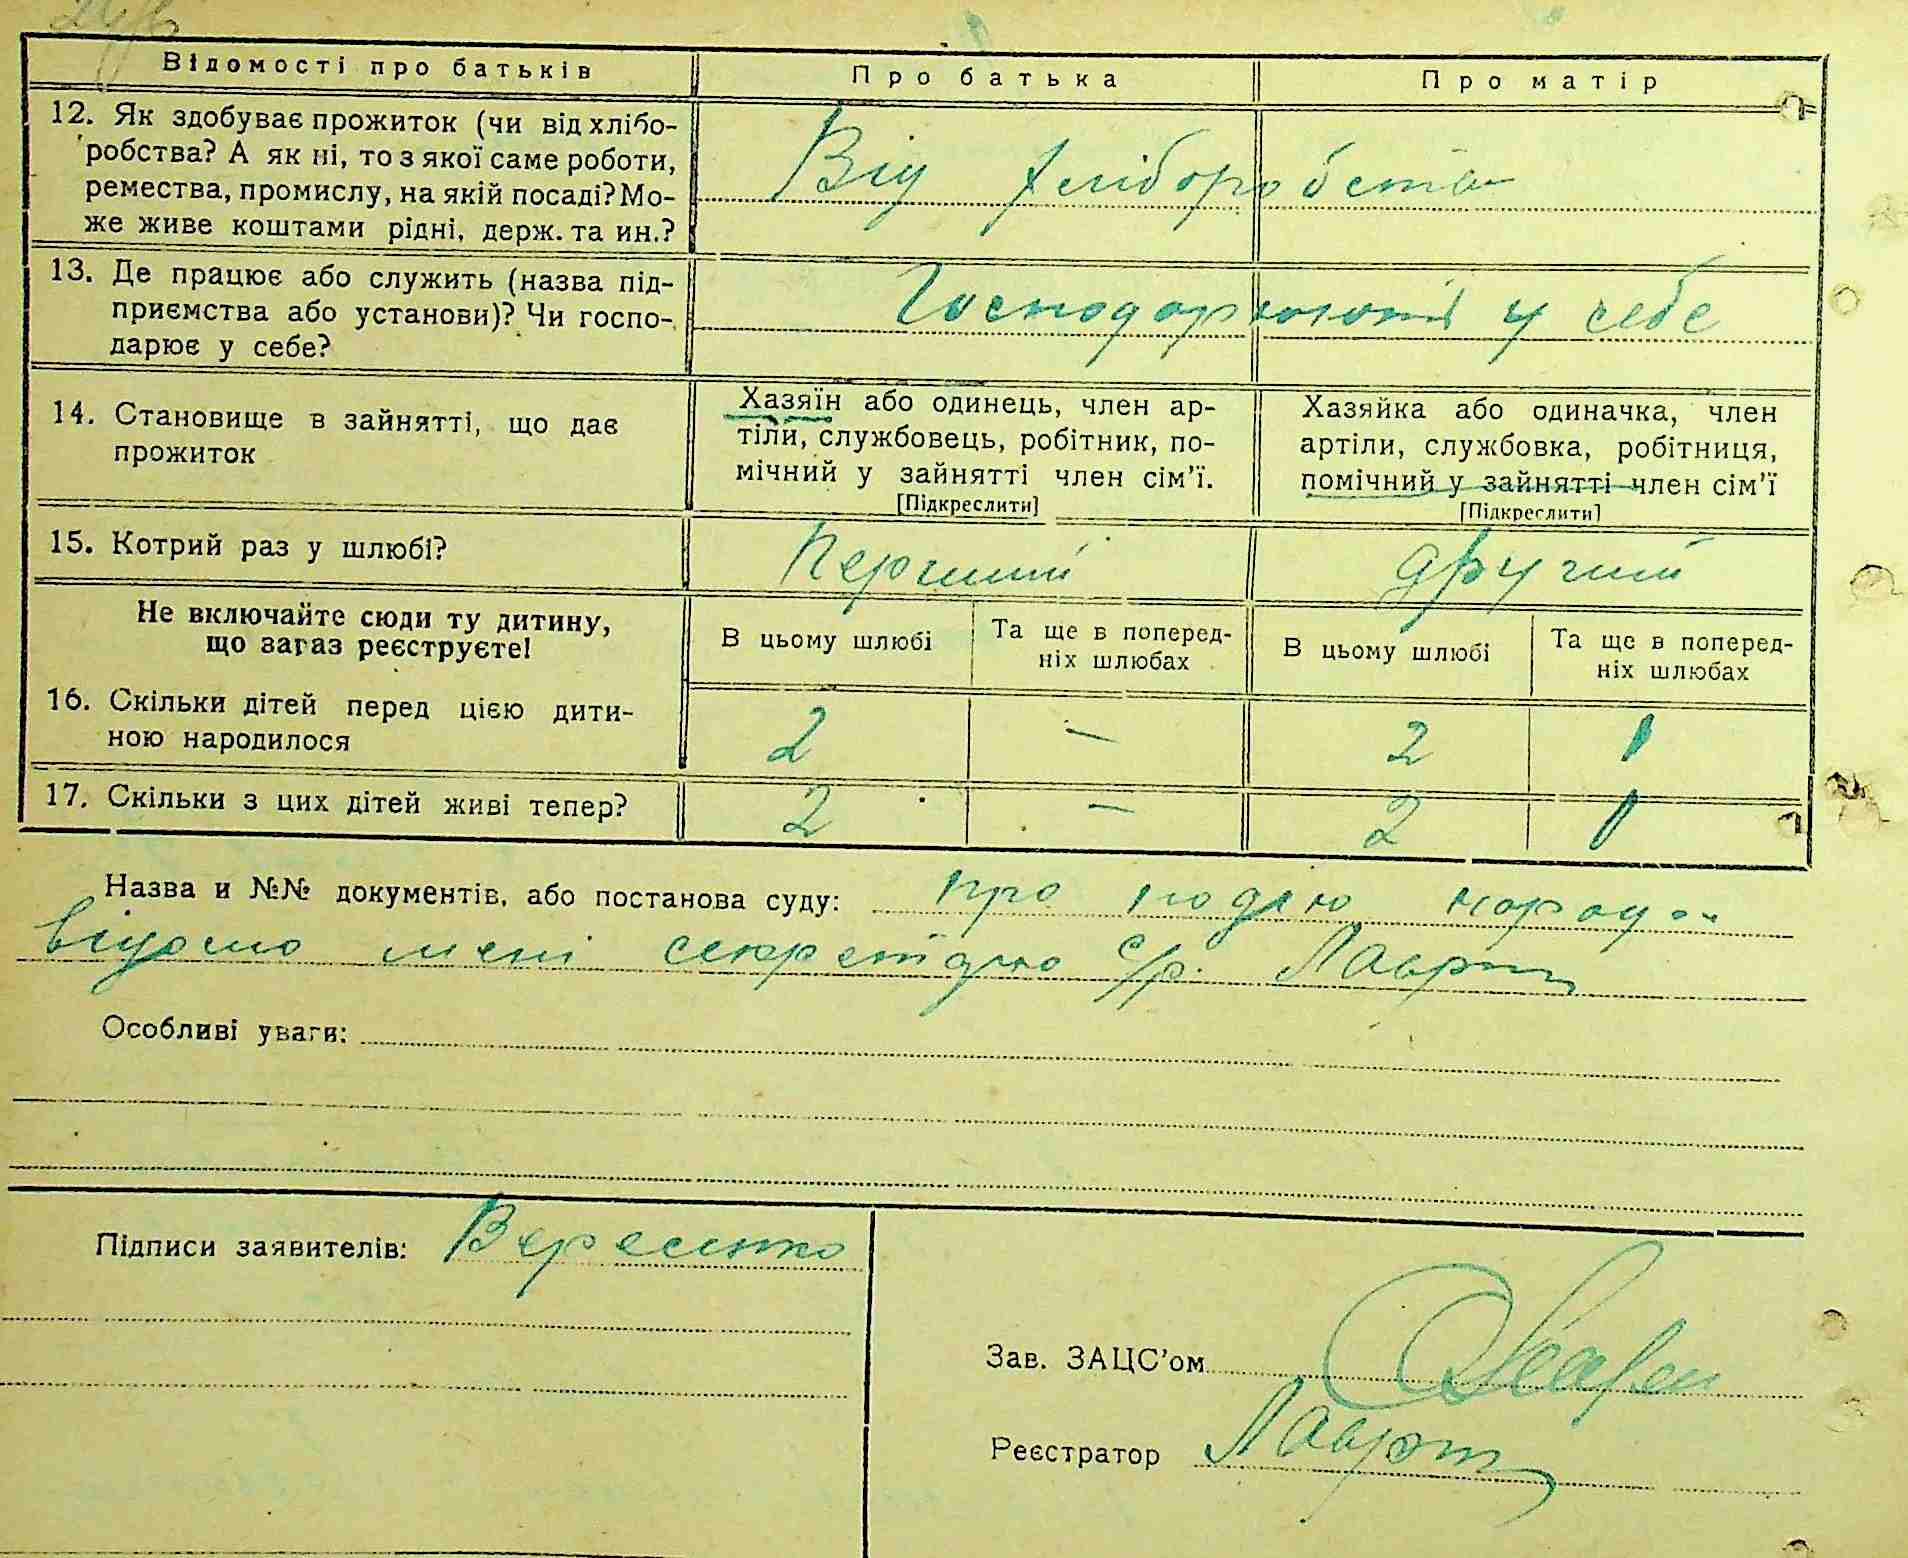 Відомості про батьків
Про батька
Про матір
12. Як здобуває прожиток (чи від хлібо-
робства? А як ні, то з якої саме роботи,
ремества, промислу, на якій посаді? Мо-
же живе коштами рідні, держ. та ин.?
Від хліборобства
13. Де працює або служить (назва під-
приємства або установи)? Чи госпо-
дарює у себе?
Господарюють у себе
14. Становище в зайнятті, що дає
прожиток
Хазяїн або одинець, член ар-
тіли, службовець, робітник, по-
мічний у зайнятті член сім'ї.
[Підкреслити]
Хазяйка або одиначка, член
артіли, службовка, робітниця,
помічний у зайнятті член сім'ї
[Підкреслити]
15. Котрий раз у шлюбі?
Перший
другий
Не включайте сюди ту дитину,
що зараз реєструєте!
В цьому шлюбі
Та ще в поперед-
ніх шлюбах
В цьому шлюбі
Та ще в поперед-
ніх шлюбах
16. Скільки дітей перед цією дити-
ною народилося
2 — 2 1
17. Скільки з цих дітей живі тепер?
2 — 2 1
Назва и №№ документів, або постанова суду: про подію народ.
відомо мені секретарю с/р.
Особливі уваги:
Підписи заявителів:
Зав. ЗАЦС'ом
Реєстратор